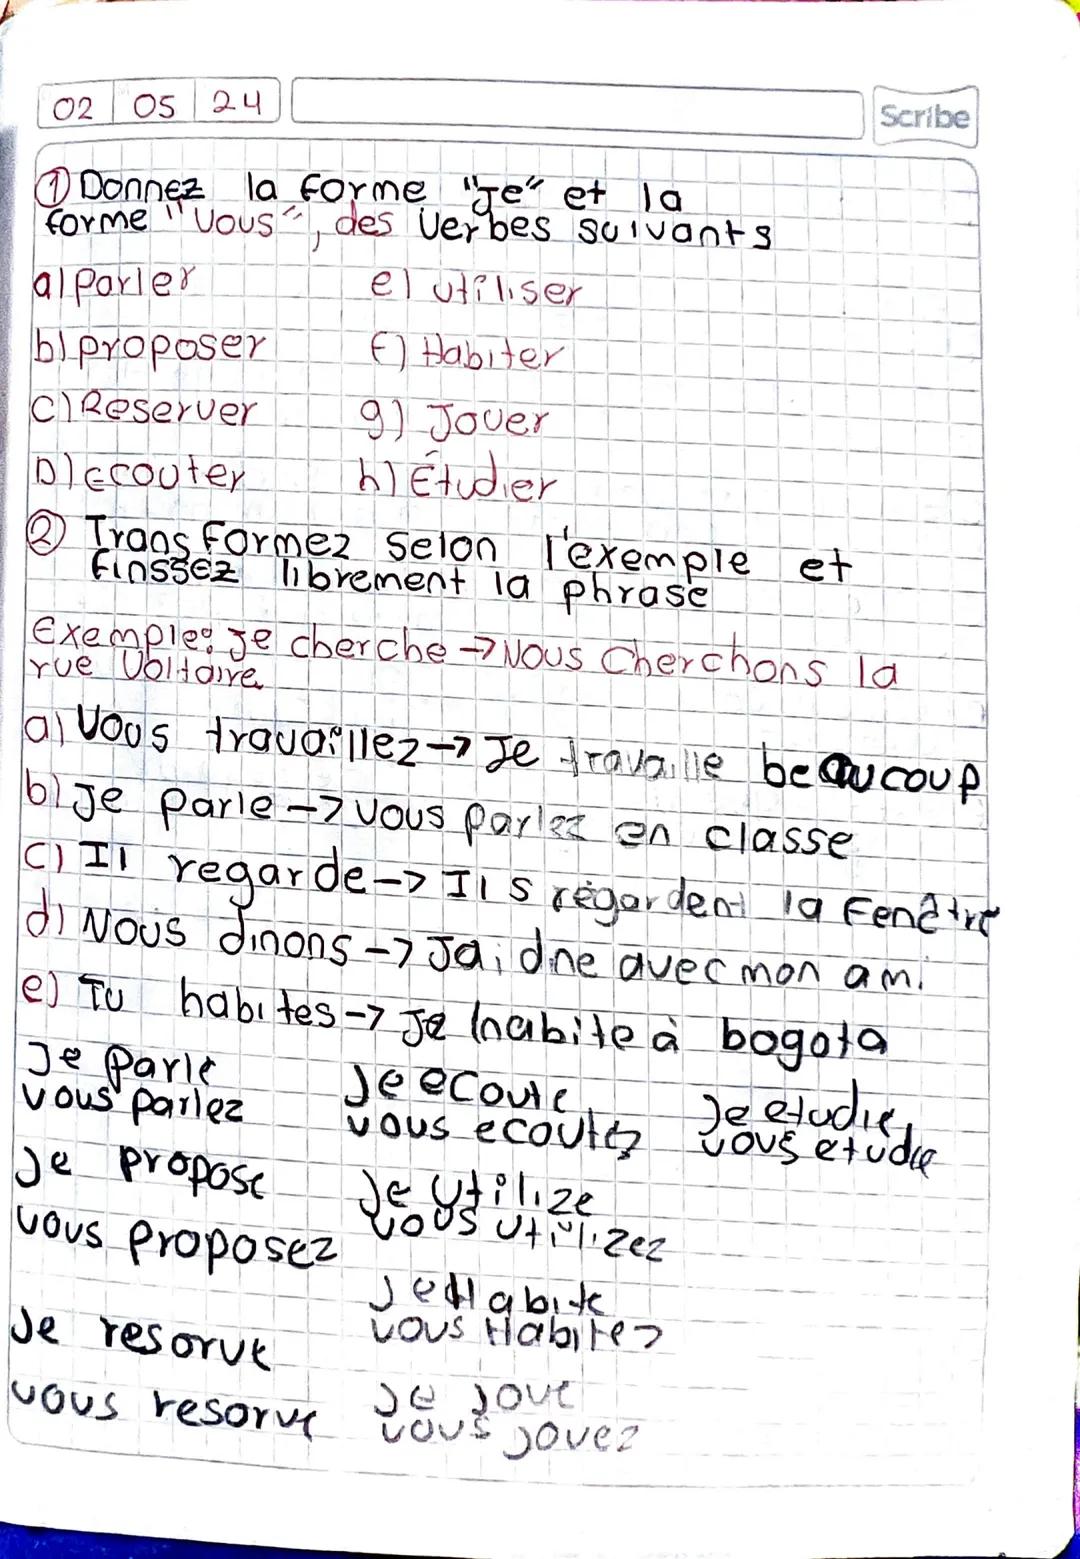 02 05 24
Scribe
① Donnez la forme "Je" et la
forme "Vous", des verbes suivants
a) Parler e) utiliser
b) proposer F) Habiter
C) Reserver g) Jouer
D) Ecouter h) Étudier
② Transformez selon l'exemple et
Finssez librement la phrase
Exemple: Je cherche → Nous Cherchons la
rue Voltaire
a) Vous travaillez → Je travaille beaucoup
b) Je parle → Vous parlez en classe
C) Il regarde → Ils regardent la Fenêtre
d) Nous dinons → Jai dine avec mon ami
e) Tu habites → Je habite à bogota
Je parle
vous parlez
Je ecoute
vous ecoutez
Je etudie
vous etudie
Je propose
vous proposez
Je utilize
vous utilizez
Je Habite
vous Habitez
Je resorve
vous resorve
Je Joue
vous jouez